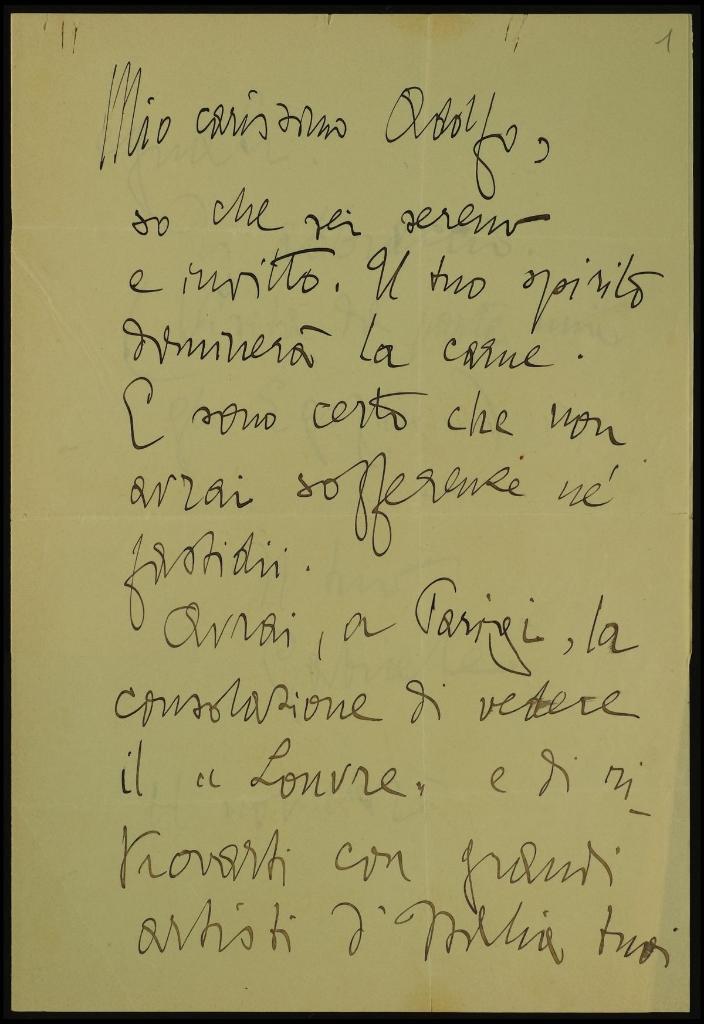 1
Mio carissimo Adolfo,
so che sei sereno
e invitto. Il tuo spirito
dominerà la carne.
E sono certo che non
avrai sofferenze né
fastidii.
Avrai, a Parigi, la
consolazione di vedere
il « Louvre » e di ri-
trovarti con grandi
artisti d'Italia tuoi